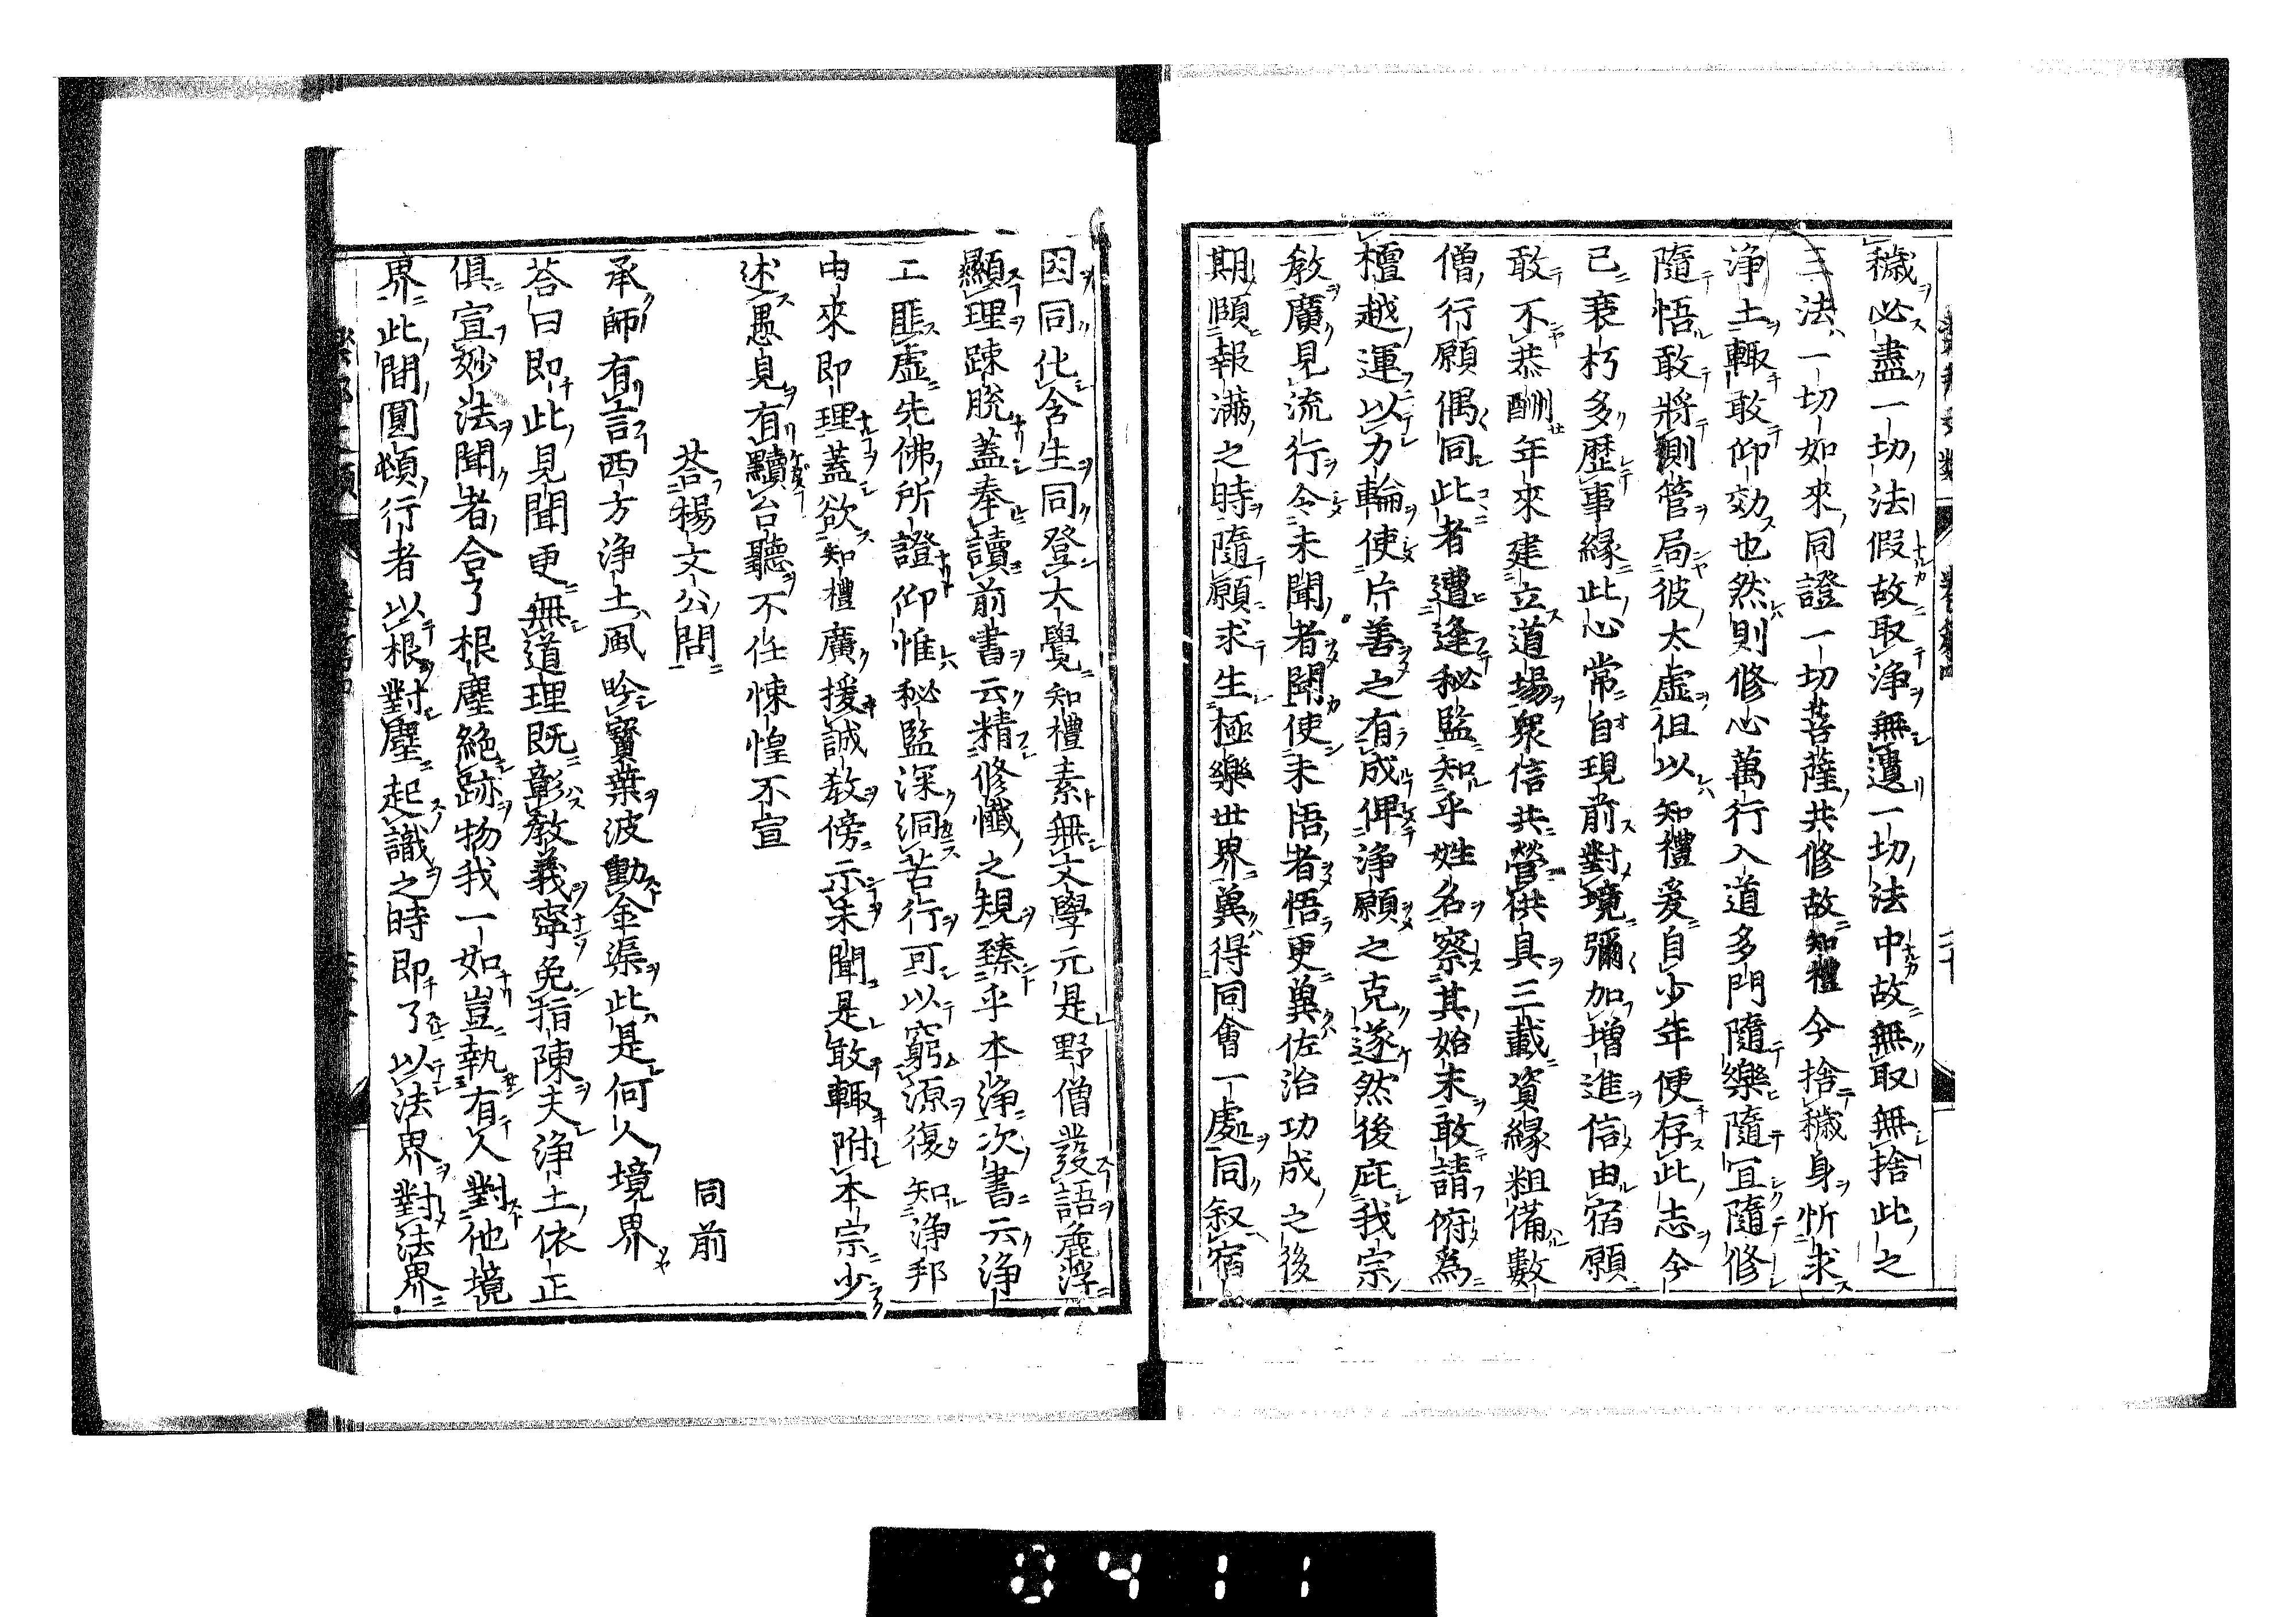 穢必盡一切法假故取淨無遺一切法中故無取無捨此之
三法一切如來同證一切菩薩共修故知禮今捨穢身忻求
淨土輙敢仰効也然則修心萬行入道多門隨樂隨宜隨修
隨悟敢將測管局彼太虛但以知禮爰自少年便存此志今
已衰朽多歷事緣此心常自現前對境彌加增進信由宿願
敢不恭酬年來建立道場衆信共營供具三載資緣粗備數
僧行願偶同此者遭逢秘監知乎姓名察其始末敢請俯爲
檀越運以力輪使片善之有成俾淨願之克遂然後庇我宗
教廣見流行令未聞者聞使未悟者悟更冀佐治功成之後
期頤報滿之時隨願求生極樂世界冀得同會一處同叙宿
因同化含生同登大覺知禮素無文學元是野僧發語麁浮
顯理踈脫蓋奉讀前書云精修懺之規臻乎本淨次書云淨
工匪虛先佛所證仰惟秘監深洞苦行可以窮源復知淨邦
由來即理蓋欲知禮廣援誠教傍示未聞是敢輙附本宗少
述愚見有黷台聽不任悚惶不宣
荅楊文公問
同前
承師有言西方淨土風吟寶葉波動金渠此是何人境界
荅曰即此見聞更無道理既彰教義寧免指陳夫淨土依正
俱宣妙法聞者合了根塵絶跡物我一如豈執有人對他境
界此間圓頓行者以根對塵起識之時即了以法界對法界
0411